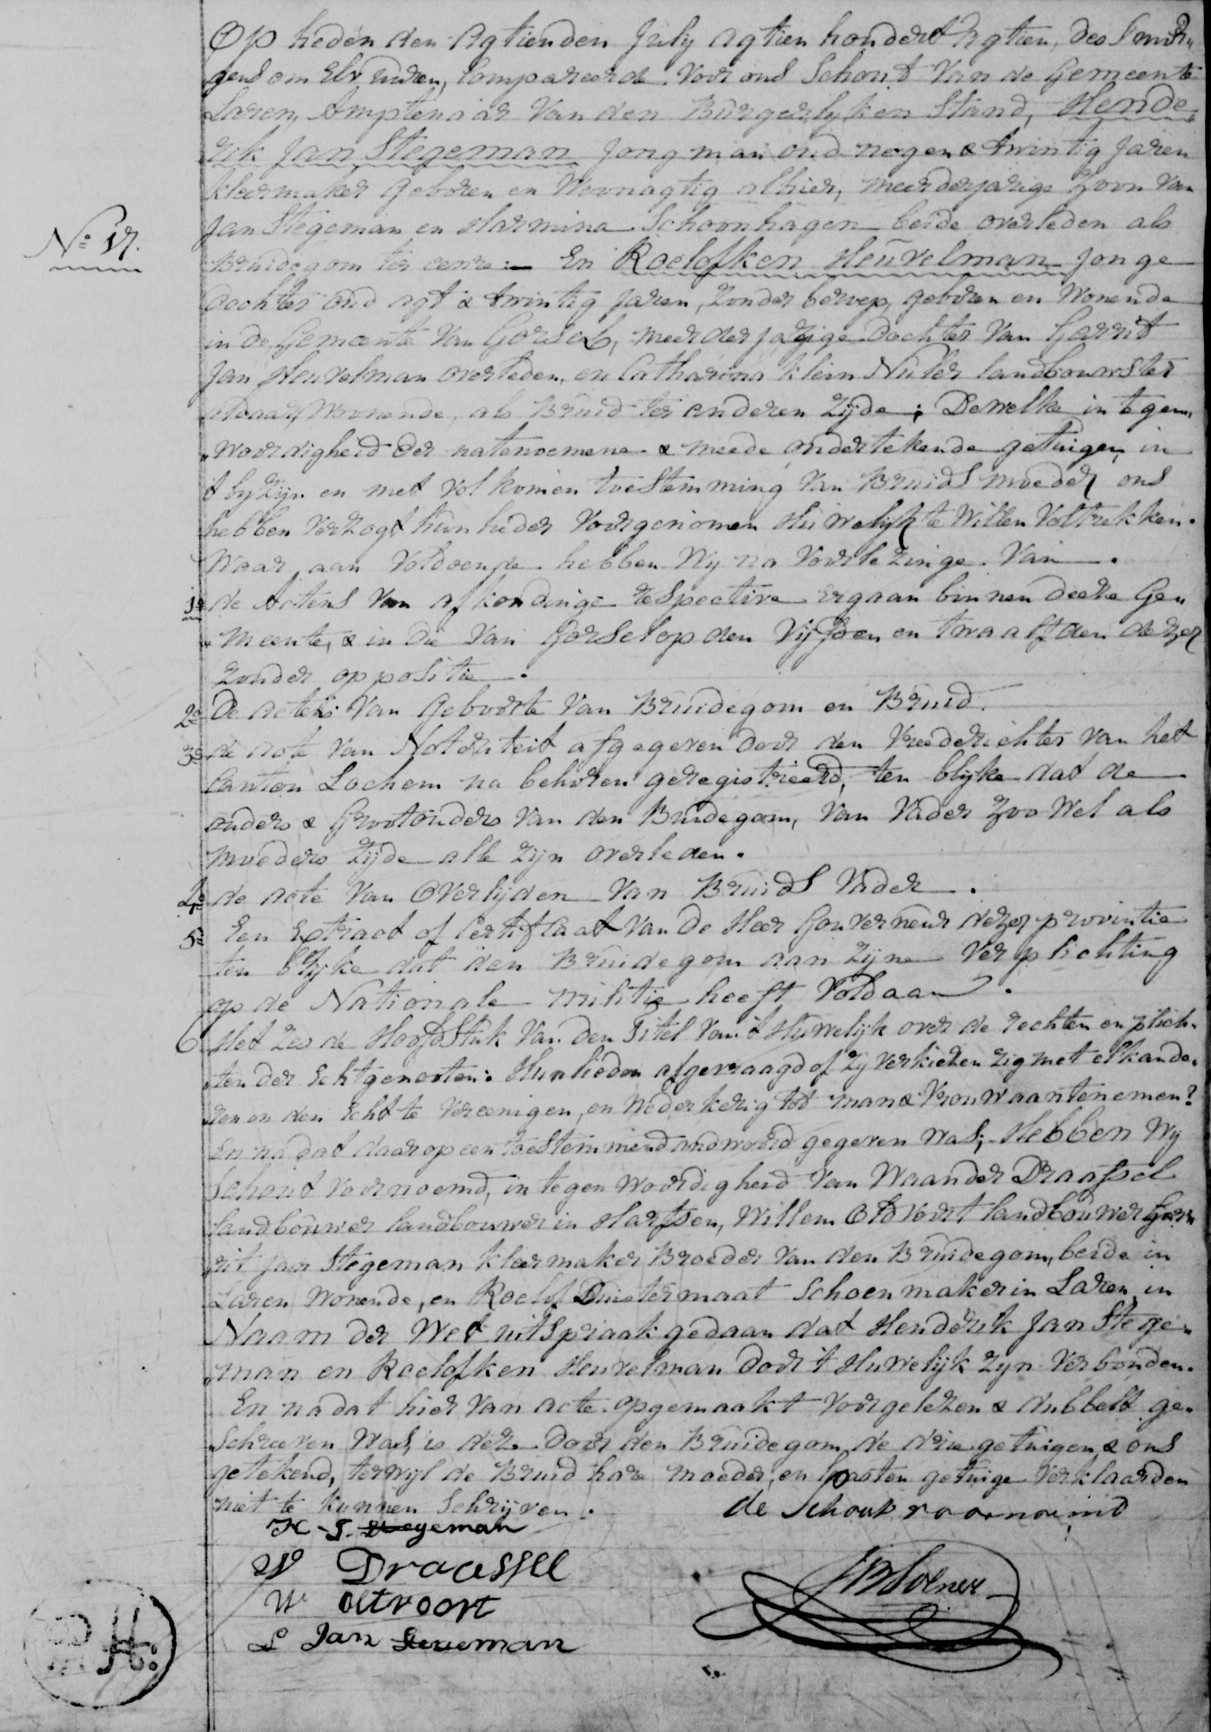 Op heden den Agtienden July Agtien hondert Agtien, des Smor„
gens om Elv Uuren, Compareerde Voor ons Schout Van de Gemeente
Laren, Amptenaar Van den Burgerlyken Stand, Hende„
rik Jan Stegeman Jongman oud negen & twintig Jaren
kleermaker Geboren en Woonagtig alhier, meerderjarige Zoon Van
Jan Stegeman en Harmina Schoonhagen beide overleden als
Bruidegom ter eenre:— En Roelofken Heuvelman Jonge
N.o 17.
Dochter oud agt & twintig Jaren, Zonder beroep, geboren en Wonende
in de Gemeente Van Gorsel, meerderjarige Dochter Van Garrit
Jan Heuvelman overleden, en Catharina klein Nulent landbouwster
aldaar Wonende, als Bruid ter anderen Zijde; Dewelke in tegen„
„woordigheid der natenoemene & meede ondertekende getuigen, in
t byzyn en met Volkomen toestemming Van Bruids moeder ons
hebben Verzogt hun lieder Voorgenomen Huwelyk te Willen Voltrekken.
Waar, aan Voldoende hebben Wy na Voorlezinge Van.
1e de Actens Van afkondinge respective ergaan binnen deeze Ge„
„meente, & in die Van Gorsel op den Vyfden en twaalfden dezer
zonder oppositie.
2e De actens Van Geboorte Van Bruidegom en Bruid.
3e de acte Van Notoriteit afgegeven door den Vreederichter van het
Canton Lochem na behoren geregistreerd, ten blyke dat de
ouders & Grootouders Van den Bruidegom, Van Vader Zoo Wel als
moeders Zijde alle Zijn overleden.
4e de acte Van Overlijden Van Bruids Vader.
5e Een Extract of Certificaat Van de Heer Gouverneur dezer provintie
ten blyke dat den Bruidegom aan Zijne Verplichting
op de Nationale militie heeft Voldaan.
6 Het Zes de Hoofdstuk Van den Titel Van 't Huwelijk over de rechten en plich„
ten der Echtgenooten. Hunlieden afgevraagd of Zy Verkiezen Zig met elkande„
ren en den Echt te Vereenigen, en Wederkerig tot man & Vrouw aantenemen?
En na dat daarop een toestemmend andwoord gegeven Was; Hebben Wy
Schout Voornoemd, in tegenwoordigheid Van Waander Draafsel
landbouwer landbouwer in Harfsen, Willem Oldvoort landbouwer Gar„
rit Jan Stegeman kleermaker Broeder Van den Bruidegom, beide in
Laren Wonende, en Roelof Duistermaat Schoenmaker in Laren, in
Naam der Wet uitspraak gedaan dat Henderik Jan Stege„
man en Roelofken Heuvelman door 't Huwelijk Zijn Verbonden.
En nadat hier Van acte opgemaakt Voorgelezen & dubbelt ge„
Schreeven Was, is deze door den Bruidegom, de drie getuigen & ons
getekend, terwijl de Bruid hare moeder, en laasten getuige Verklaarden
niet te kunnen Schrijven.
de Schout voornoemd
H J Stegeman
W Draassel
W oltvoort
Jan Stegeman